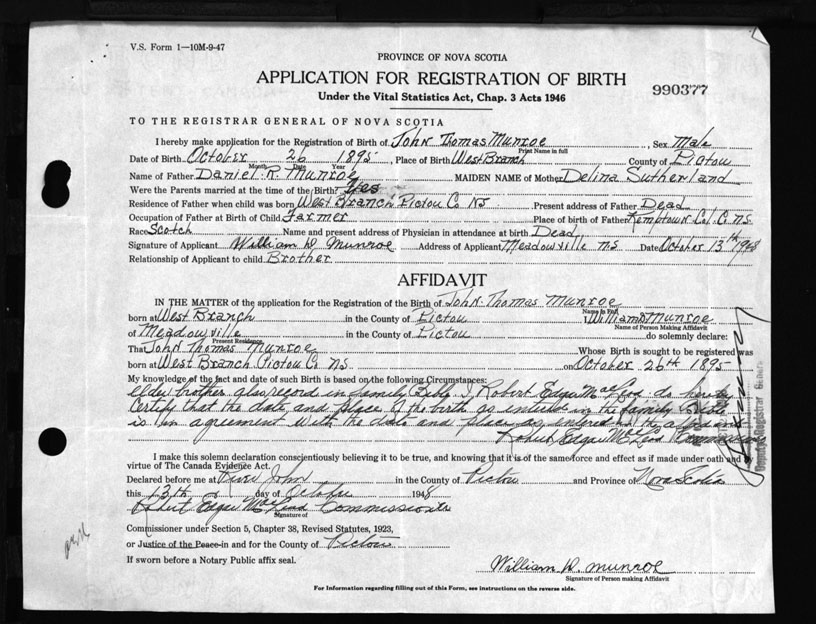 V.S. Form 1—10M-9-47
PROVINCE OF NOVA SCOTIA
APPLICATION FOR REGISTRATION OF BIRTH
990377
Under the Vital Statistics Act, Chap. 3 Acts 1946
TO THE REGISTRAR GENERAL OF NOVA SCOTIA
I hereby make application for the Registration of Birth of John Thomas Munroe, Sex Male
Print Name in full
Date of Birth October 26 1895, Place of Birth West Branch County of Pictou
Month Date Year
Name of Father Daniel R. Munroe MAIDEN NAME of Mother Delina Sutherland
Were the Parents married at the time of the Birth? Yes
Residence of Father when child was born West Branch Pictou Co NS Present address of Father Dead
Occupation of Father at Birth of Child Farmer Place of birth of Father Kemptown Col. Co NS
Race Scotch Name and present address of Physician in attendance at birth Dead
Signature of Applicant William D. Munroe Address of Applicant Meadowville NS Date October 13th 1948
Relationship of Applicant to child Brother
AFFIDAVIT
IN THE MATTER of the application for the Registration of the Birth of John Thomas Munroe
Name in Full
born at West Branch in the County of Pictou I William D Munroe
Name of Person Making Affidavit
of Meadowville in the County of Pictou do solemnly declare:
Present Residence
That John Thomas Munroe Whose Birth is sought to be registered was
born at West Branch Pictou Co NS on October 26th 1895
My knowledge of the fact and date of such Birth is based on the following Circumstances:
elder brother also record in family Bible I, Robert Edgar MacLeod do hereby
certify that the date and place of the birth as entered in the family Bible
is in agreement with the date and place as entered in the affidavit
Robert Edgar McLeod Commissioner
I make this solemn declaration conscientiously believing it to be true, and knowing that it is of the same force and effect as if made under oath and by
virtue of The Canada Evidence Act.
Declared before me at River John in the County of Pictou and Province of Nova Scotia
this 13th day of October 1948
Robert Edgar MacLeod Commissioner
Signature of
Commissioner under Section 5, Chapter 38, Revised Statutes, 1923,
or Justice of the Peace in and for the County of Pictou
If sworn before a Notary Public affix seal.
William D. Munroe
Signature of Person making Affidavit
For Information regarding filling out of this Form, see instructions on the reverse side.
Deputy Registrar